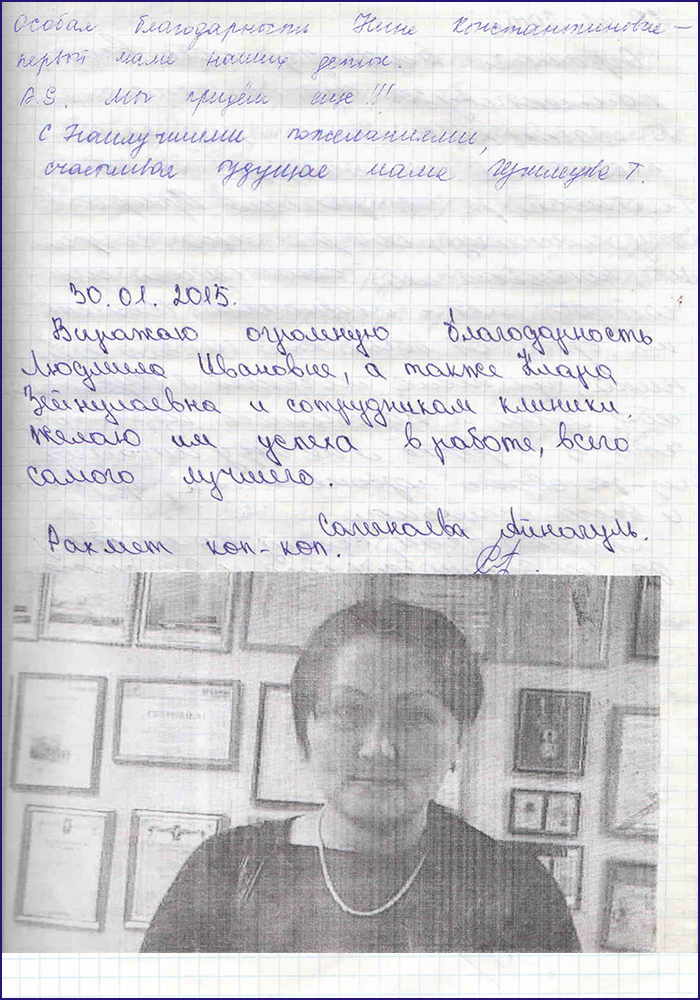 Особая благодарность Нине Константиновне -
первой маме наших деток.
P.S. Мы придём еще!!!
С Наилучшими пожеланиями,
счастливая будущая мама Т.
30.01.2015.
Выражаю огромную благодарность
Людмила Ивановне, а также Клара
Зейнулаевна и сотрудникам клиники.
Желаю им успеха в работе, всего
самого лучшего.
Айнагуль.
Рахмет коп-коп.